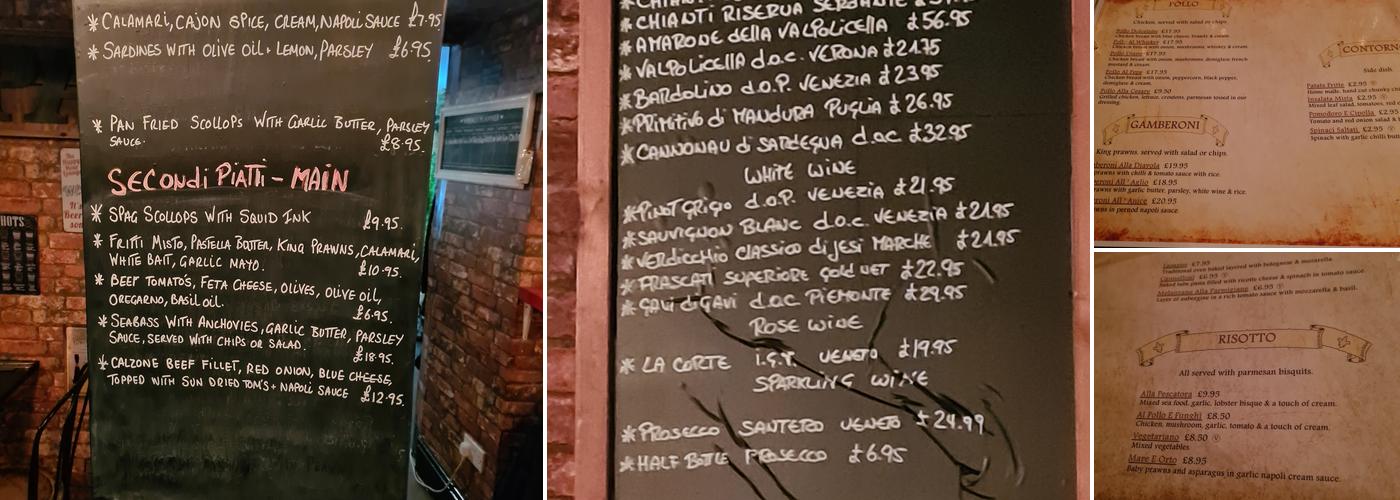 * CALAMARI, CAJON SPICE, CREAM, NAPOLI SAUCE £7.95
* SARDINES WITH OLIVE OIL + LEMON, PARSLEY £6.95
* PAN FRIED SCOLLOPS WITH GARLIC BUTTER, PARSLEY
SAUCE. £8.95.
SECONdi PiATTi - MAIN
* SPAG SCOLLOPS WITH SQUID INK £9.95.
* FRITTI MISTO, PASTELLA BATTER, KING PRAWNS, CALAMARI,
WHITE BAIT, GARLIC MAYO. £10.95.
* BEEF TOMATO'S, FETA CHEESE, OLIVES, OLIVE OIL,
OREGARNO, BASIL OIL. £6.95.
* SEABASS WITH ANCHOVIES, GARLIC BUTTER, PARSLEY
SAUCE, SERVED WITH CHIPS OR SALAD. £18.95.
* CALZONE BEEF FILLET, RED ONION, BLUE CHEESE,
TOPPED WITH SUN DRIED TOM'S + NAPOLI SAUCE £12.95.
HOTS
* CHIANTI RISERVA
* AMARONE dELLA VALPOLICELLA £56.95
* VALPOLICELLA d.o.c. VERONA £21.75
* BARDOLINO d.O.P. VENEZIA £23.95
* PRIMITIVO di MANDURA PUGLIA £26.95
* CANNONAU di SARDEGNA d.o.c £32.95
WHITE WINE
* PINOT GRIGIO d.O.P. VENEZIA £21.95
* SAUVIGNON BLANC d.o.c. VENEZIA £21.95
* VERDICCHIO CLASSICO di JESI MARCHE £21.95
* FRASCATI SUPERIORE GOLD £22.95
* GAVI di GAVI d.o.c PIEMONTE £29.95
ROSE WINE
* LA CORTE I.G.T VENETO £19.95
SPARKLING WINE
* PROSECCO SANTERO VENETO £24.99
* HALF BOTLE PROSECCO £6.95
POLLO
Chicken, served with salad or chips.
Pollo Dolcelatte £17.95
Chicken breast with blue cheese, brandy & cream.
Pollo Al Whiskey £17.95
Chicken breast with onion, mushrooms, whiskey & cream.
Pollo Diane £17.95
Chicken breast with onion, mushrooms, demiglaze french
mustard & cream.
Pollo Al Pepe £17.95
Chicken breast with onion, peppercorn, black pepper,
demiglaze & cream.
Pollo Alla Cesare £9.50
Grilled chicken, lettuce, croutons, parmesan tossed in our
dressing.
GAMBERONI
King prawns, served with salad or chips.
beroni Alla Diavola £19.95
rawns with chilli & tomato sauce with rice.
eroni All'Aglio £18.95
wns with garlic butter, parsley, white wine & rice.
eroni All'Anice £20.95
wns in pernod napoli sauce.
CONTORN
Side dish.
Patata Fritte £2.95 Ⓥ
Home made, hand cut chunky chi
Insalata Mista £2.95 Ⓥ
Mixed leaf salad, tomatoes, red
Pomodoro E Cipolla £2.95
Tomato and red onion salad &
Spinaci Saltati £2.95
Spinach with garlic chilli butt
Lasagne £7.95
Traditional oven baked layered with bolognese & mozzarella.
Cannelloni £6.95 Ⓥ
Baked tube pasta filled with ricotta cheese & spinach in tomato sauce.
Melanzane Alla Parmigiana £6.95 Ⓥ
Layer of aubergine in a rich tomato sauce with mozzarella & basil.
RISOTTO
All served with parmesan bisquits.
Alla Pescatora £9.95
Mixed sea food, garlic, lobster bisque & a touch of cream.
Al Pollo E Funghi £8.50
Chicken, mushroom, garlic, tomato & a touch of cream.
Vegetariano £8.50 Ⓥ
Mixed vegetables
Mare E Orto £8.95
Baby prawns and asparagus in garlic napoli cream sauce.